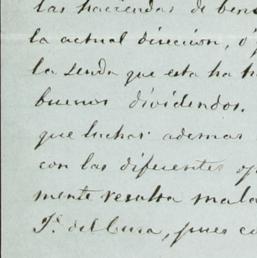 las haciendas de ben
la actual direccion, ó
la senda que esta ha h
buenos dividendos.
que luchar ademas
con las diferentes op
mente resulta mala
del Cura, pues